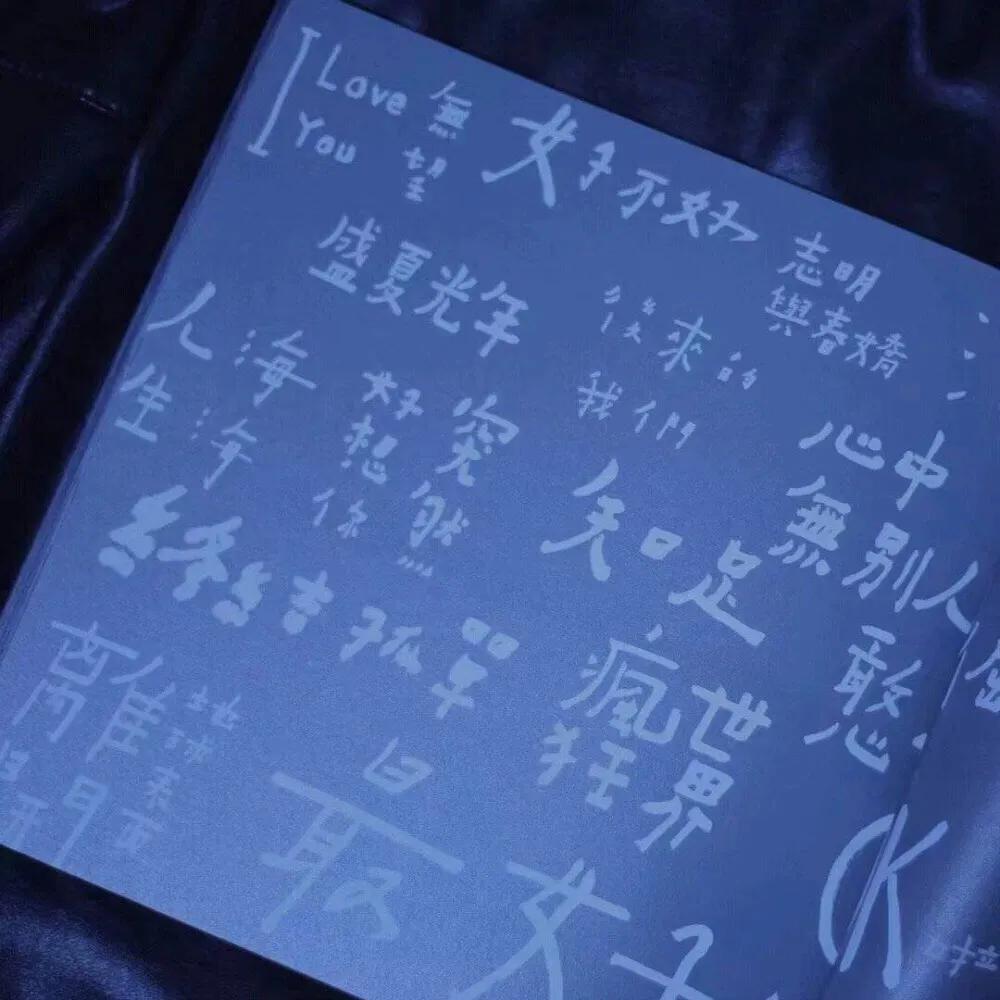 I Love You
無望
好不好
志明
與春嬌
盛夏光年
後來的
我們
人生
海海
突然
好想你
心中
無別人
知足
終結孤單
瘋狂
世界
憨
離
地球
表面
最
好
K
拉